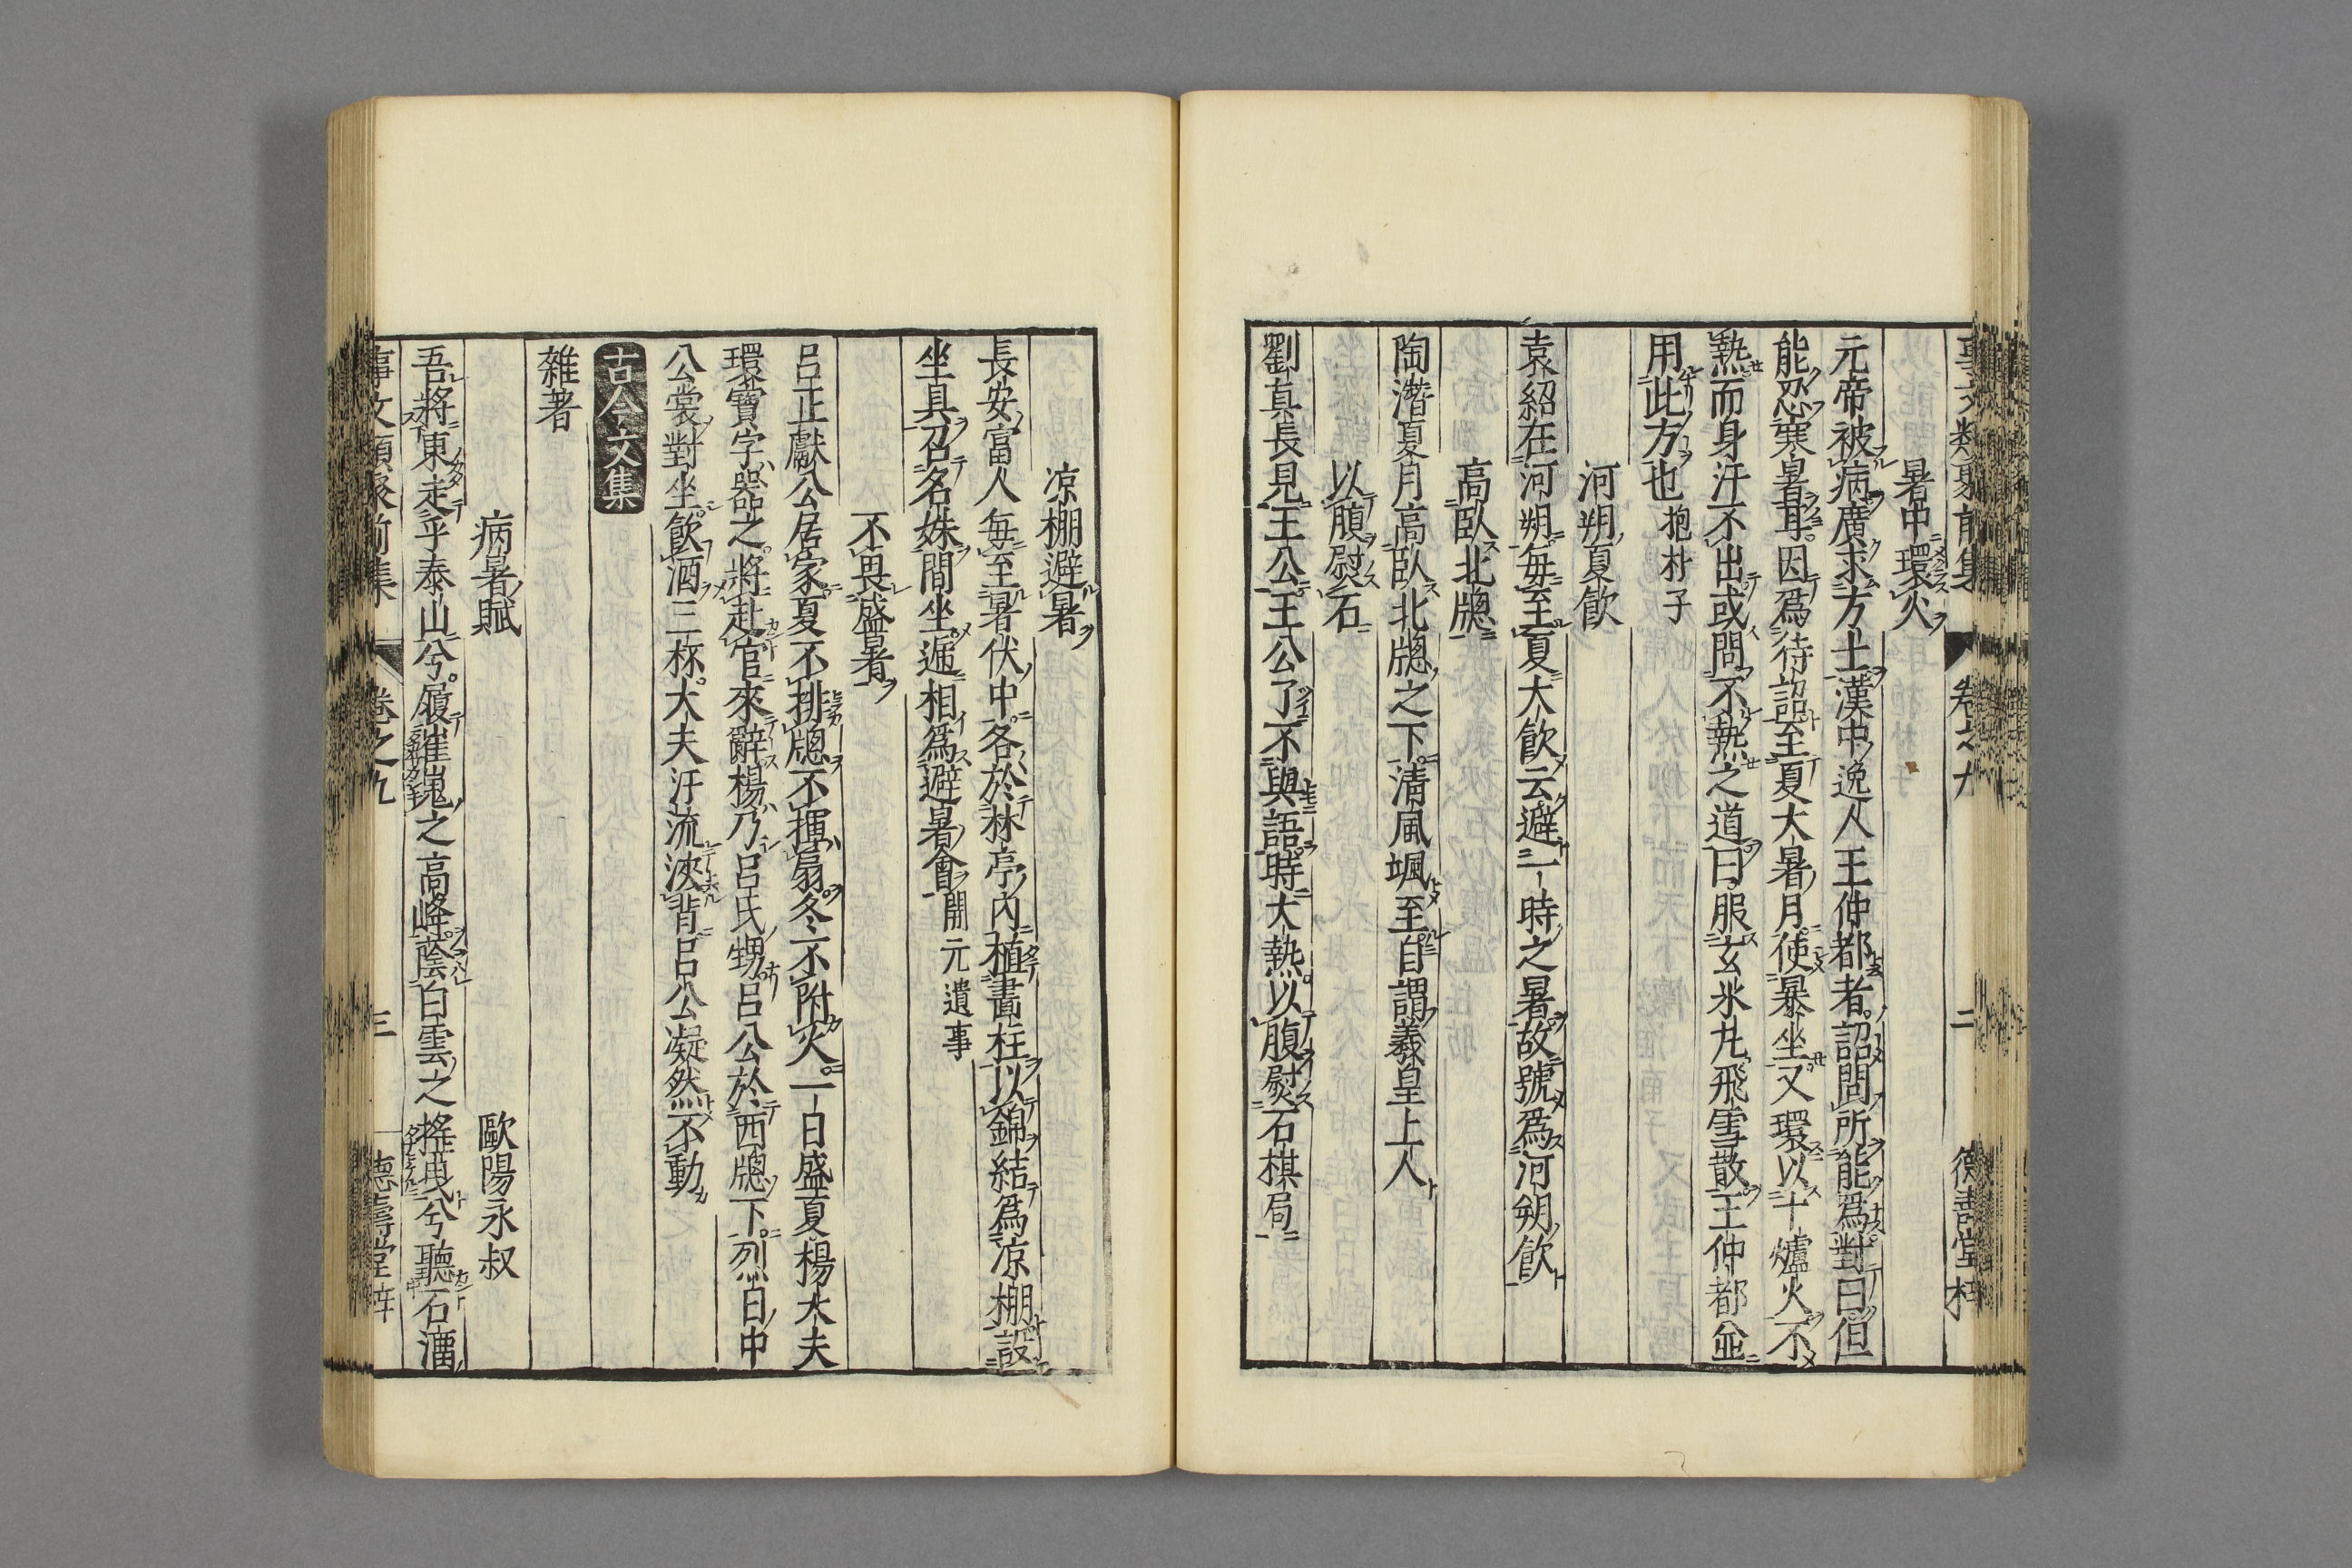 事文類聚前集 卷之九 二 德壽堂梓
暑中環火
元帝被病廣求方士漢中逸人王仲都者詔問所能爲對曰但
能忍寒暑耳因爲待詔至夏大暑月使暴坐又環以十爐火不
熱而身汗不出或問不熱之道曰服玄氷丸飛雪散王仲都並
用此方也抱朴子
河朔夏飮
袁紹在河朔每至夏大飮云避一時之暑故號爲河朔飮
高臥北牕
陶潛夏月高臥北牕之下清風颯至自謂羲皇上人
以腹熨石
劉真長見王公王公了不與語時大熱以腹熨石棋局
凉棚避暑
長安富人每至暑伏中各於林亭內植畫柱以錦結爲凉棚設
坐具召名姝間坐遞相爲避暑會開元遺事
不畏盛暑
呂正獻公居家夏不排牕不揮扇冬不附火一日盛夏楊大夫
環寶字器之將赴官來辭楊乃呂氏甥呂公於西牕下烈日中
公裳對坐飮酒三杯大夫汗流浹背呂公凝然不動
古今文集
雜著
病暑賦 歐陽永叔
吾將東走乎泰山兮履崔嵬之高峰蔭白雲之搖曳兮聽石溜
事文類聚前集 卷之九 三 德壽堂梓